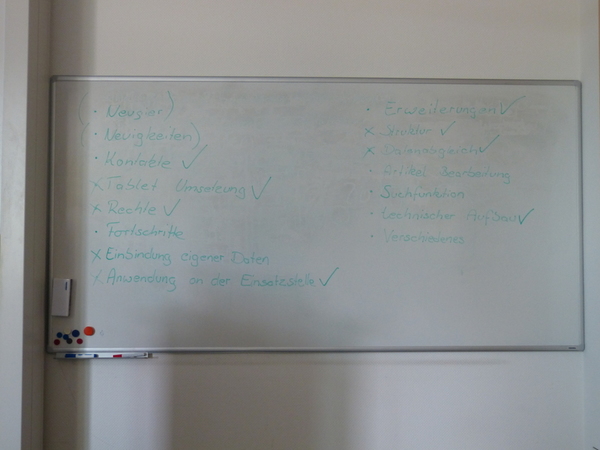 (· Neugier)
(· Neuigkeiten)
· Kontakte ✓
x Tablet Umsetzung ✓
x Rechte ✓
· Fortschritte
x Einbindung eigener Daten
x Anwendung an der Einsatzstelle ✓
· Erweiterungen ✓
x Struktur ✓
x Datenabgleich ✓
· Artikel Bearbeitung
· Suchfunktion
· technischer Aufbau ✓
· Verschiedenes